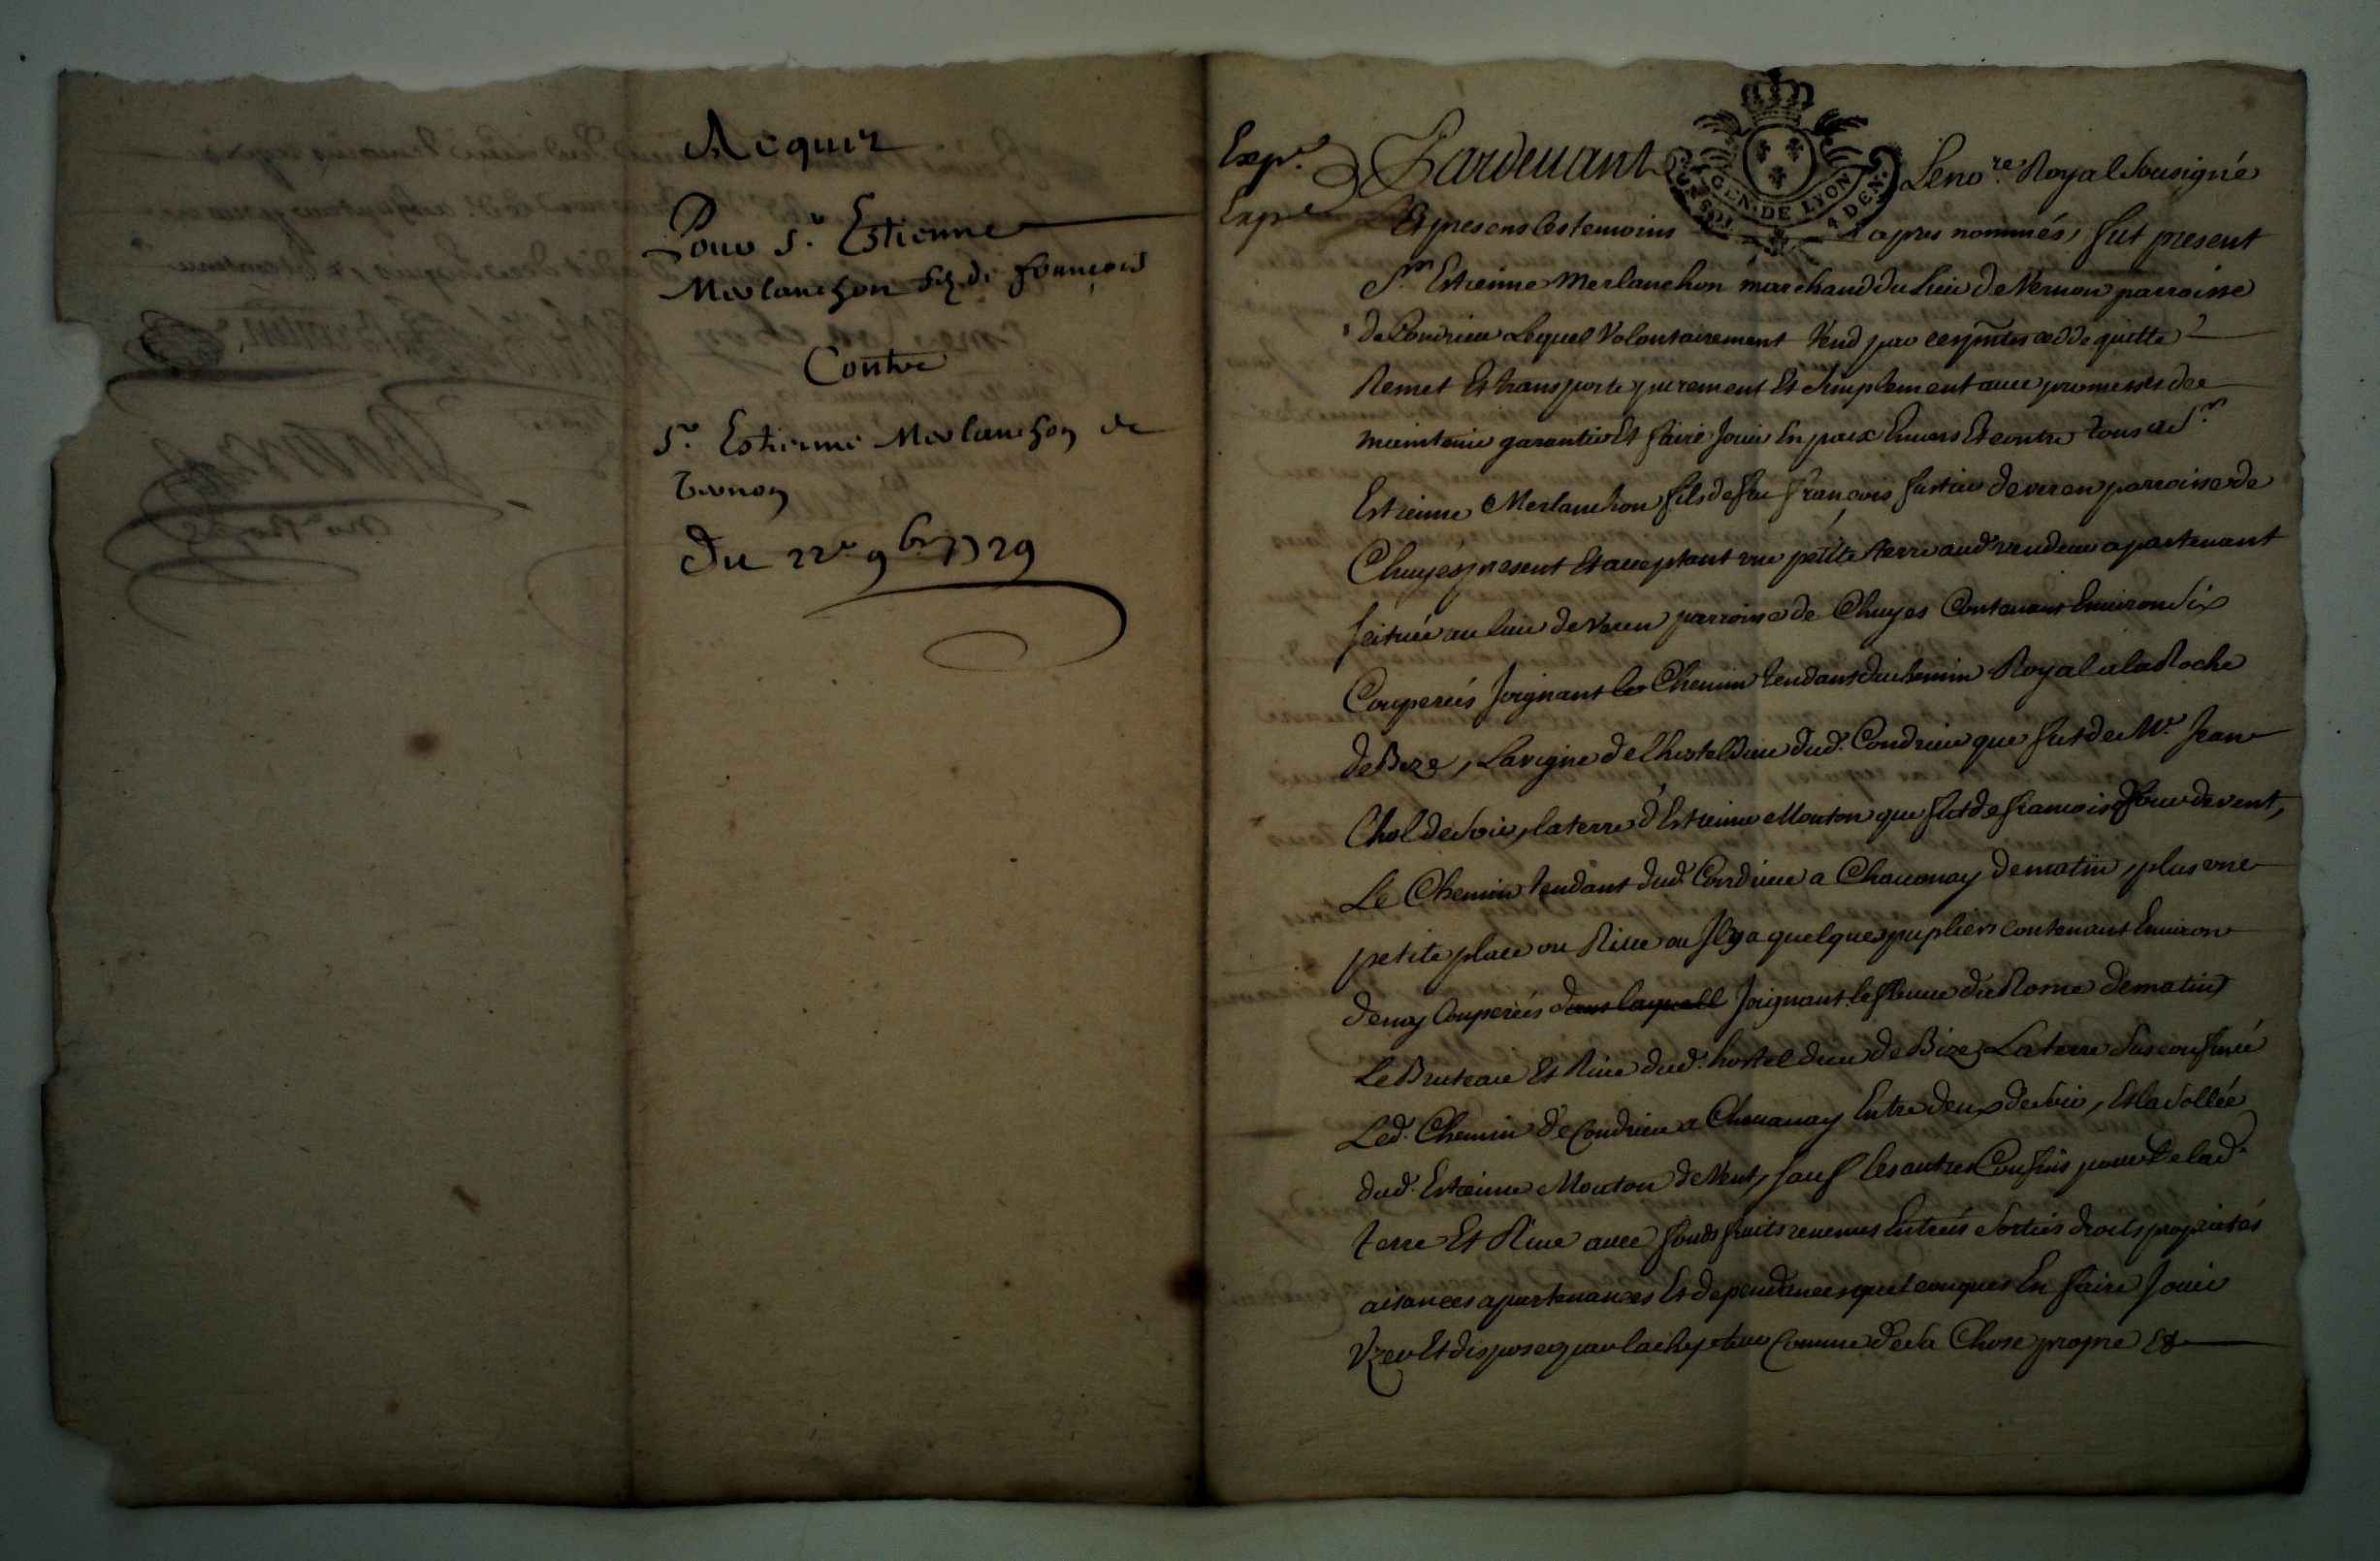 Acquiz
Pour Sr. Estienne
Merlanchon filz de françois
Contre
Sr. Estienne Merlanchon de
Vernon
Du 22e 9bre 1729
Expé.
Expé
Pardevant
GEN. DE LYON
4 DEN.
Le nore. Royal Sousigné
Et presens les temoins apres nommés, fut present
Sr. Estienne Merlanchon marchand du lieu de Vernon parroisse
de Condrieu Lequel Volontairement Vend par ces pntes cedde quitte
Remet Et transporte purement Et simplement avec promesses de
maintenir garantir Et faire Jouir En paix Envers Et contre tous a Sr.
Estienne Merlanchon fils de feu François de veren parroisse de
Chuyes present Et acceptant une petite terre aud. vendeur apartenant
scituée au lieu de Veren parroisse de Chuyes Contenant Environ Six
Couperées Joignant le Chemin tendant du chemin Royal a la Roche
de Bize, La vigne de l'hostel Dieu dud. Condrieu que fut de Mr. Jean
Chol de Soir, la terre d'Estienne Mouton que fut de francois de vent,
Le Chemin tendant dud. Condrieu a Chavanay de matin, plus une
petite place ou Rive ou Il y a quelques pupliers contenant Environ
demy Couperées dans laquell Joignant le fleuve du Rosne de matin
Le Bruteau Et Rive dud. hostel dieu de Bize, La terre Sus confinée
Led. Chemin de Condrieu a Chavanay Entre deux de soir, Et la Sollée
dud. Estienne Mouton de Vent, sauf les autres Confins de lad.
terre Et Rive avec fonds fruits revenus Entrées Sorties droits proprietés
aisances apartenances Et dependances quelconques En faire Jouir
Vzer Et disposer par lachepteur Comme de sa Chose propre Et